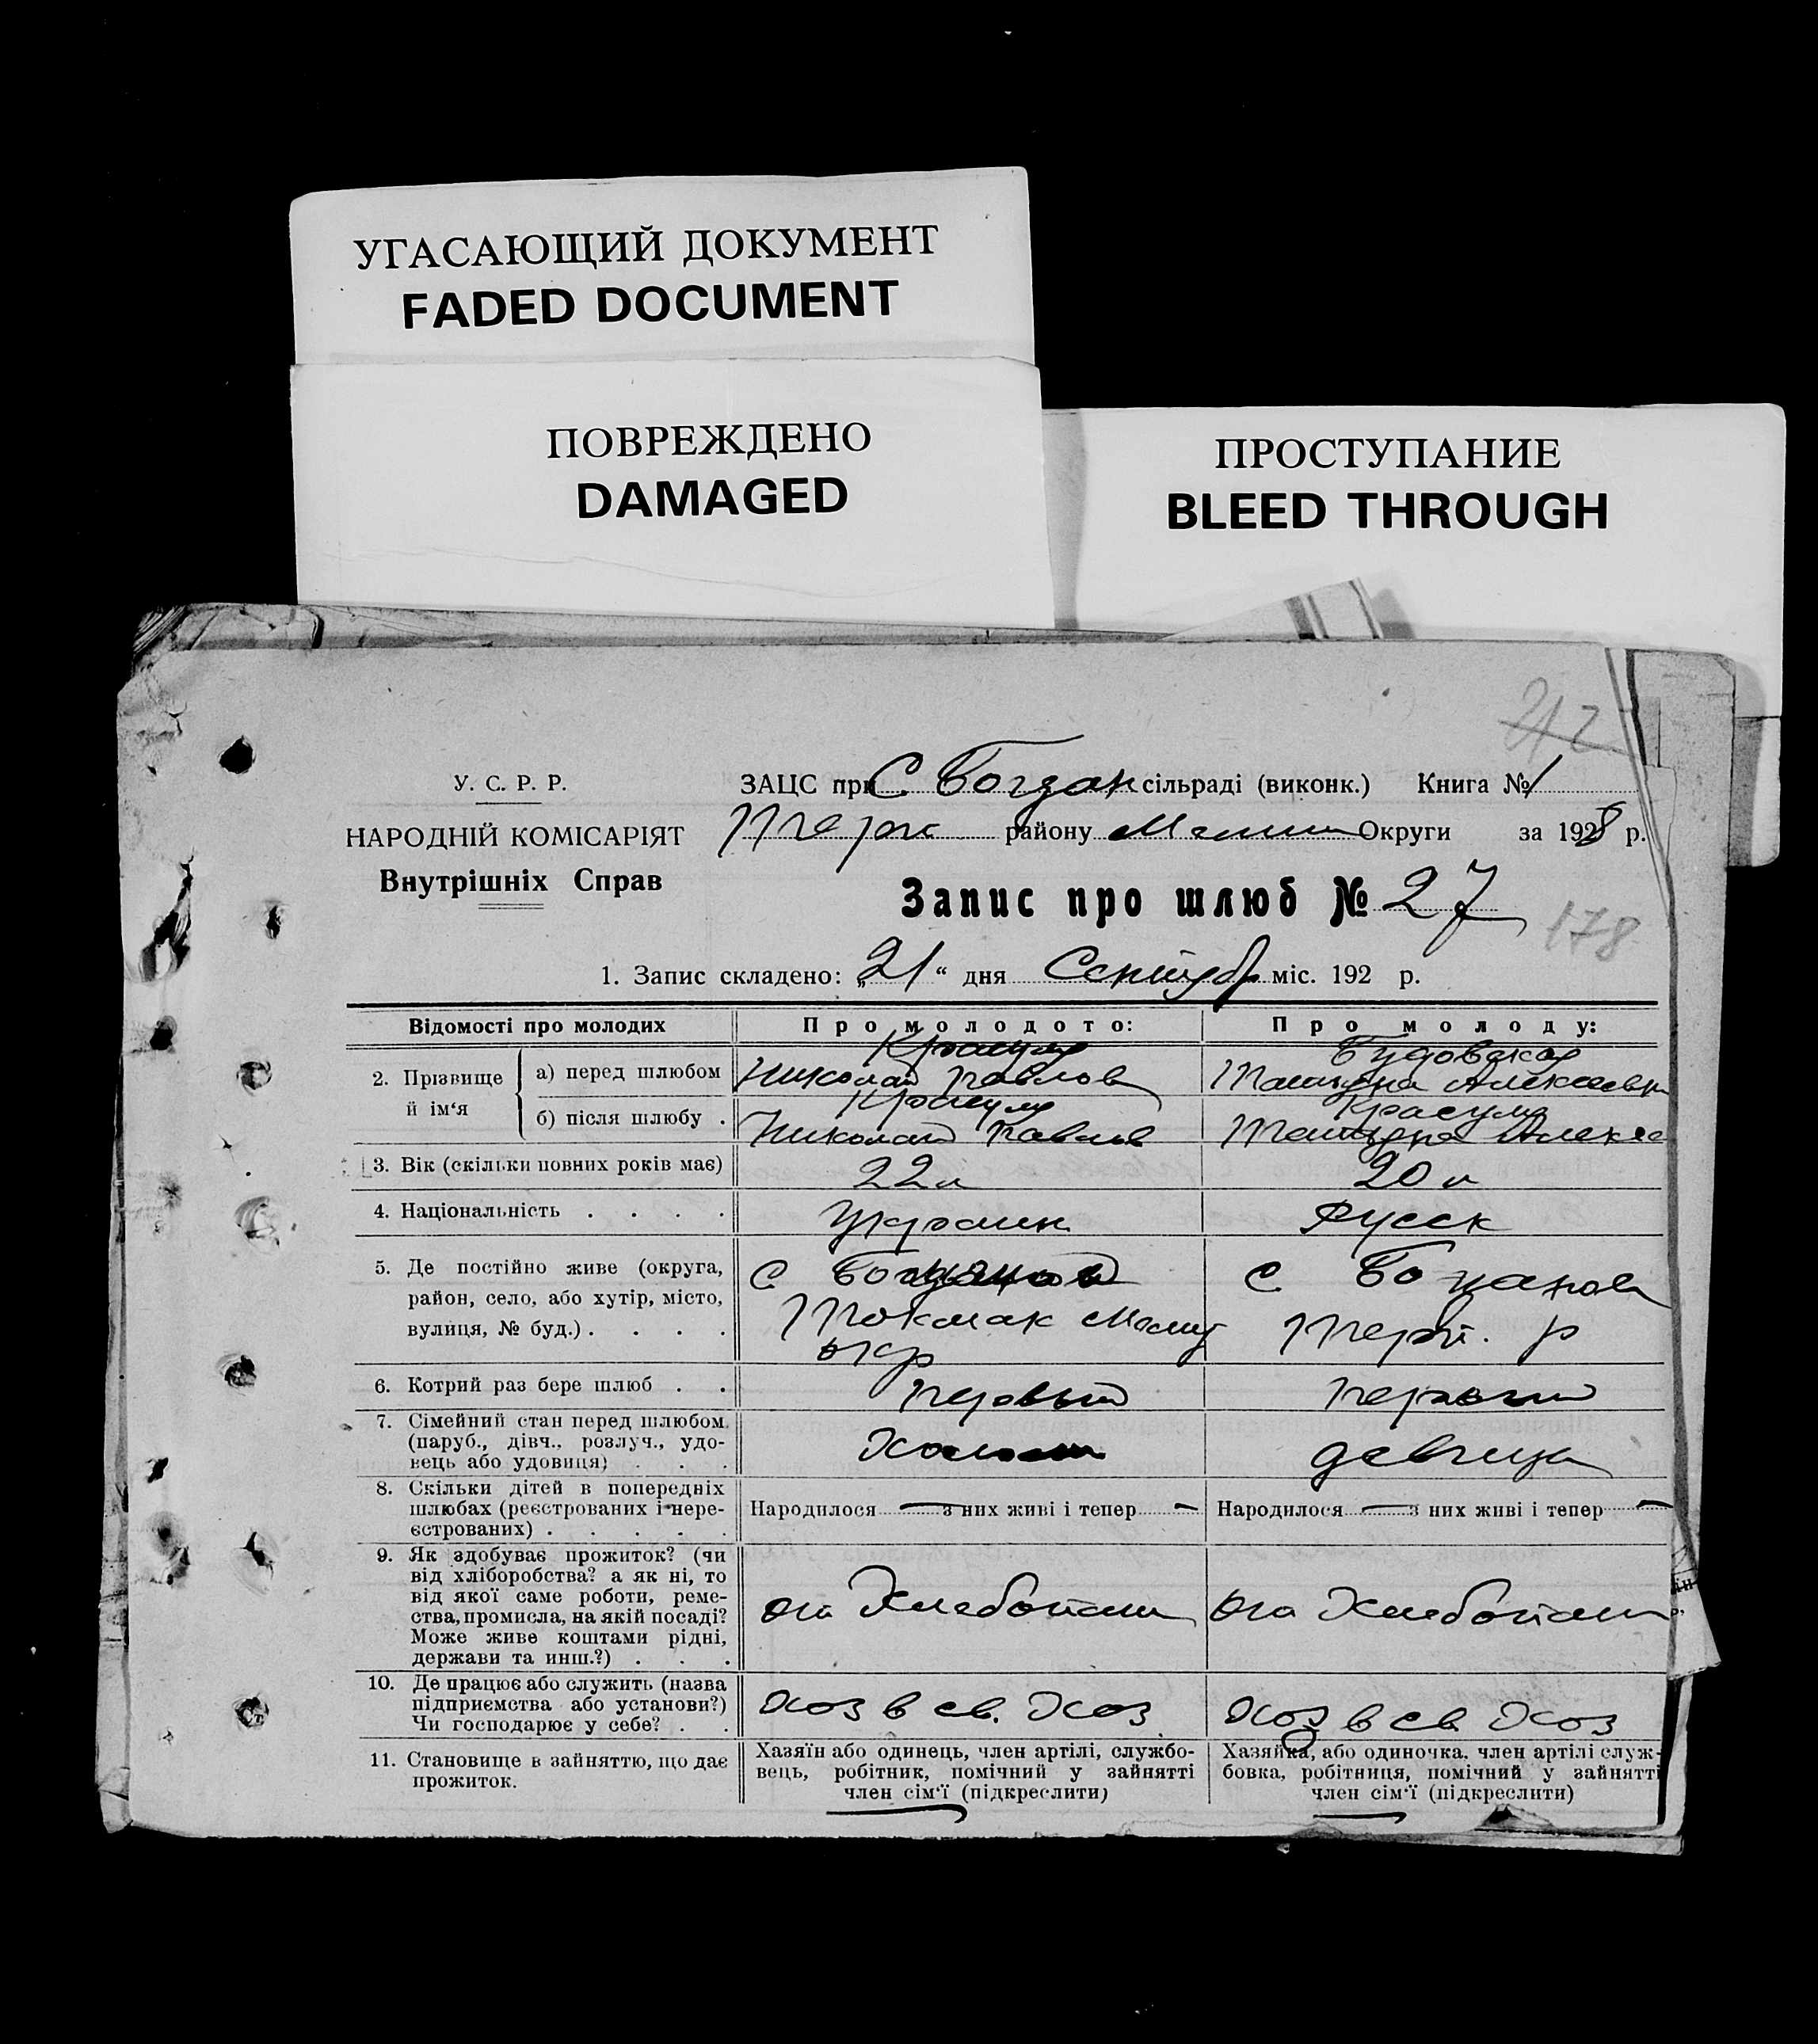 УГАСАЮЩИЙ ДОКУМЕНТ
FADED DOCUMENT
ПОВРЕЖДЕНО
DAMAGED
ПРОСТУПАНИЕ
BLEED THROUGH
212
У. С. Р. Р.
НАРОДНІЙ КОМІСАРІЯТ
Внутрішніх Справ
ЗАЦС при С Богдан сільраді (виконк.) Книга № 1
району Округи за 1928 р.
Запис про шлюб № 27
178
1. Запис складено: „21“ дня міс. 192 р.
Відомості про молодих
Про молодого:
Про молоду:
2. Прізвище й ім‘я
а) перед шлюбом
Красуля
Николай Павлов
Алексеевн
б) після шлюбу .
Красуля
Николай Павлов
Красуля
Алексе
3. Вік (скільки повних років має)
22 л
20 л
4. Національність . . . .
Украин
Русск
5. Де постійно живе (округа,
район, село, або хутір, місто,
вулиця, № буд.) . . . .
С
Токмак
окр
С
р
6. Котрий раз бере шлюб . .
первый
первый
7. Сімейний стан перед шлюбом
(паруб., дівч., розлуч., удо-
вець або удовиця) . . .
девица
8. Скільки дітей в попередніх
шлюбах (реєстрованих і нере-
єстрованих) . . . . .
Народилося — з них живі і тепер —
Народилося — з них живі і тепер —
9. Як здобуває прожиток? (чи
від хліборобства? а як ні, то
від якої саме роботи, реме-
ства, промисла, на якій посаді?
Може живе коштами рідні,
держави та инш.?) . . .
от
от
10. Де працює або служить (назва
підприємства або установи?)
Чи господарює у себе? . .
Хоз в св. Хоз
Хоз в св Хоз
11. Становище в зайняттю, що дає
прожиток.
Хазяїн або одинець, член артілі, службо-
вець, робітник, помічний у зайнятті
член сім‘ї (підкреслити)
Хазяйка, або одиночка, член артілі служ-
бовка, робітниця, помічний у зайнятті
член сім‘ї (підкреслити)